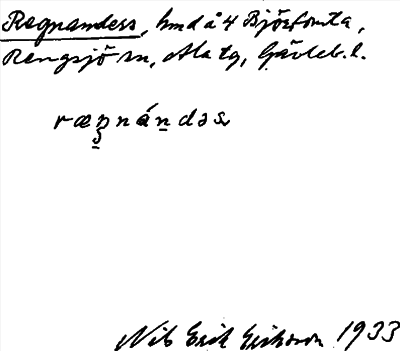 Regnanders, hmd å 4 Björfonta,
Rengsjö sn, Ala tg, Gävleb. l.
ræn̠nán̠dəs
Nils Erik Eriksson 1933